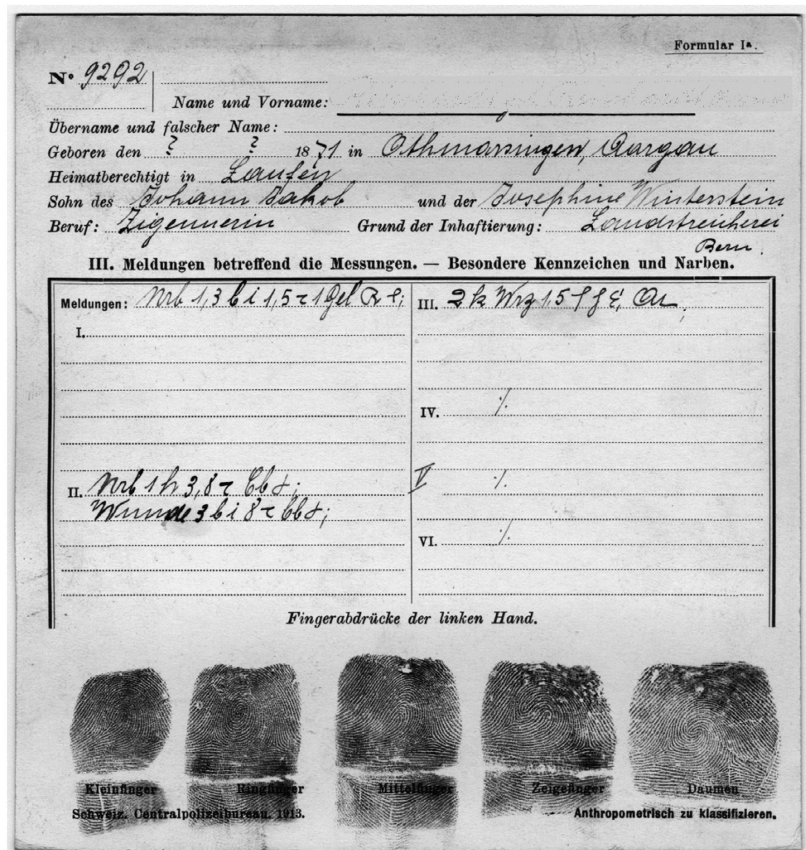 Formular Ia.
No 9292
Name und Vorname:
Übername und falscher Name:
Geboren den ? ? 1871 in Othmarsingen, Aargau
Heimatberechtigt in Laufen
Sohn des Johann Jakob und der Josephine Winterstein
Beruf: Zigeunerin Grund der Inhaftierung: Landstreicherei
Bern.
III. Meldungen betreffend die Messungen. — Besondere Kennzeichen und Narben.
Meldungen: Nrb 1,3 b i 1,5
I.
II. Nrb 1 h 3,8
Wunde 3 b i 8
III. 2 k Wrz 1,5
IV. ./.
V ./.
VI. ./.
Fingerabdrücke der linken Hand.
Kleinfinger Ringfinger Mittelfinger Zeigefinger Daumen
Schweiz. Centralpolizeibureau. 1913. Anthropometrisch zu klassifizieren.